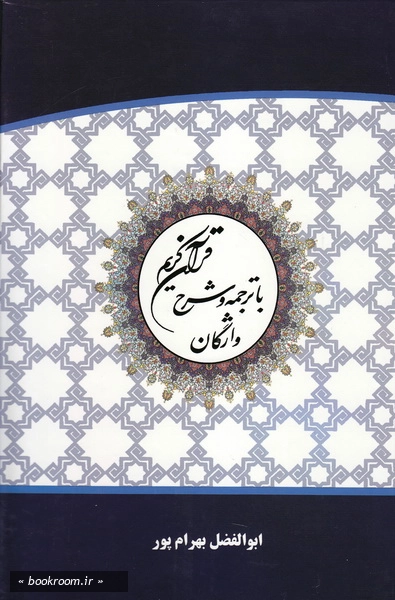 قرآن کریم
با ترجمه و شرح
واژگان
ابوالفضل بهرام پور
« bookroom.ir »